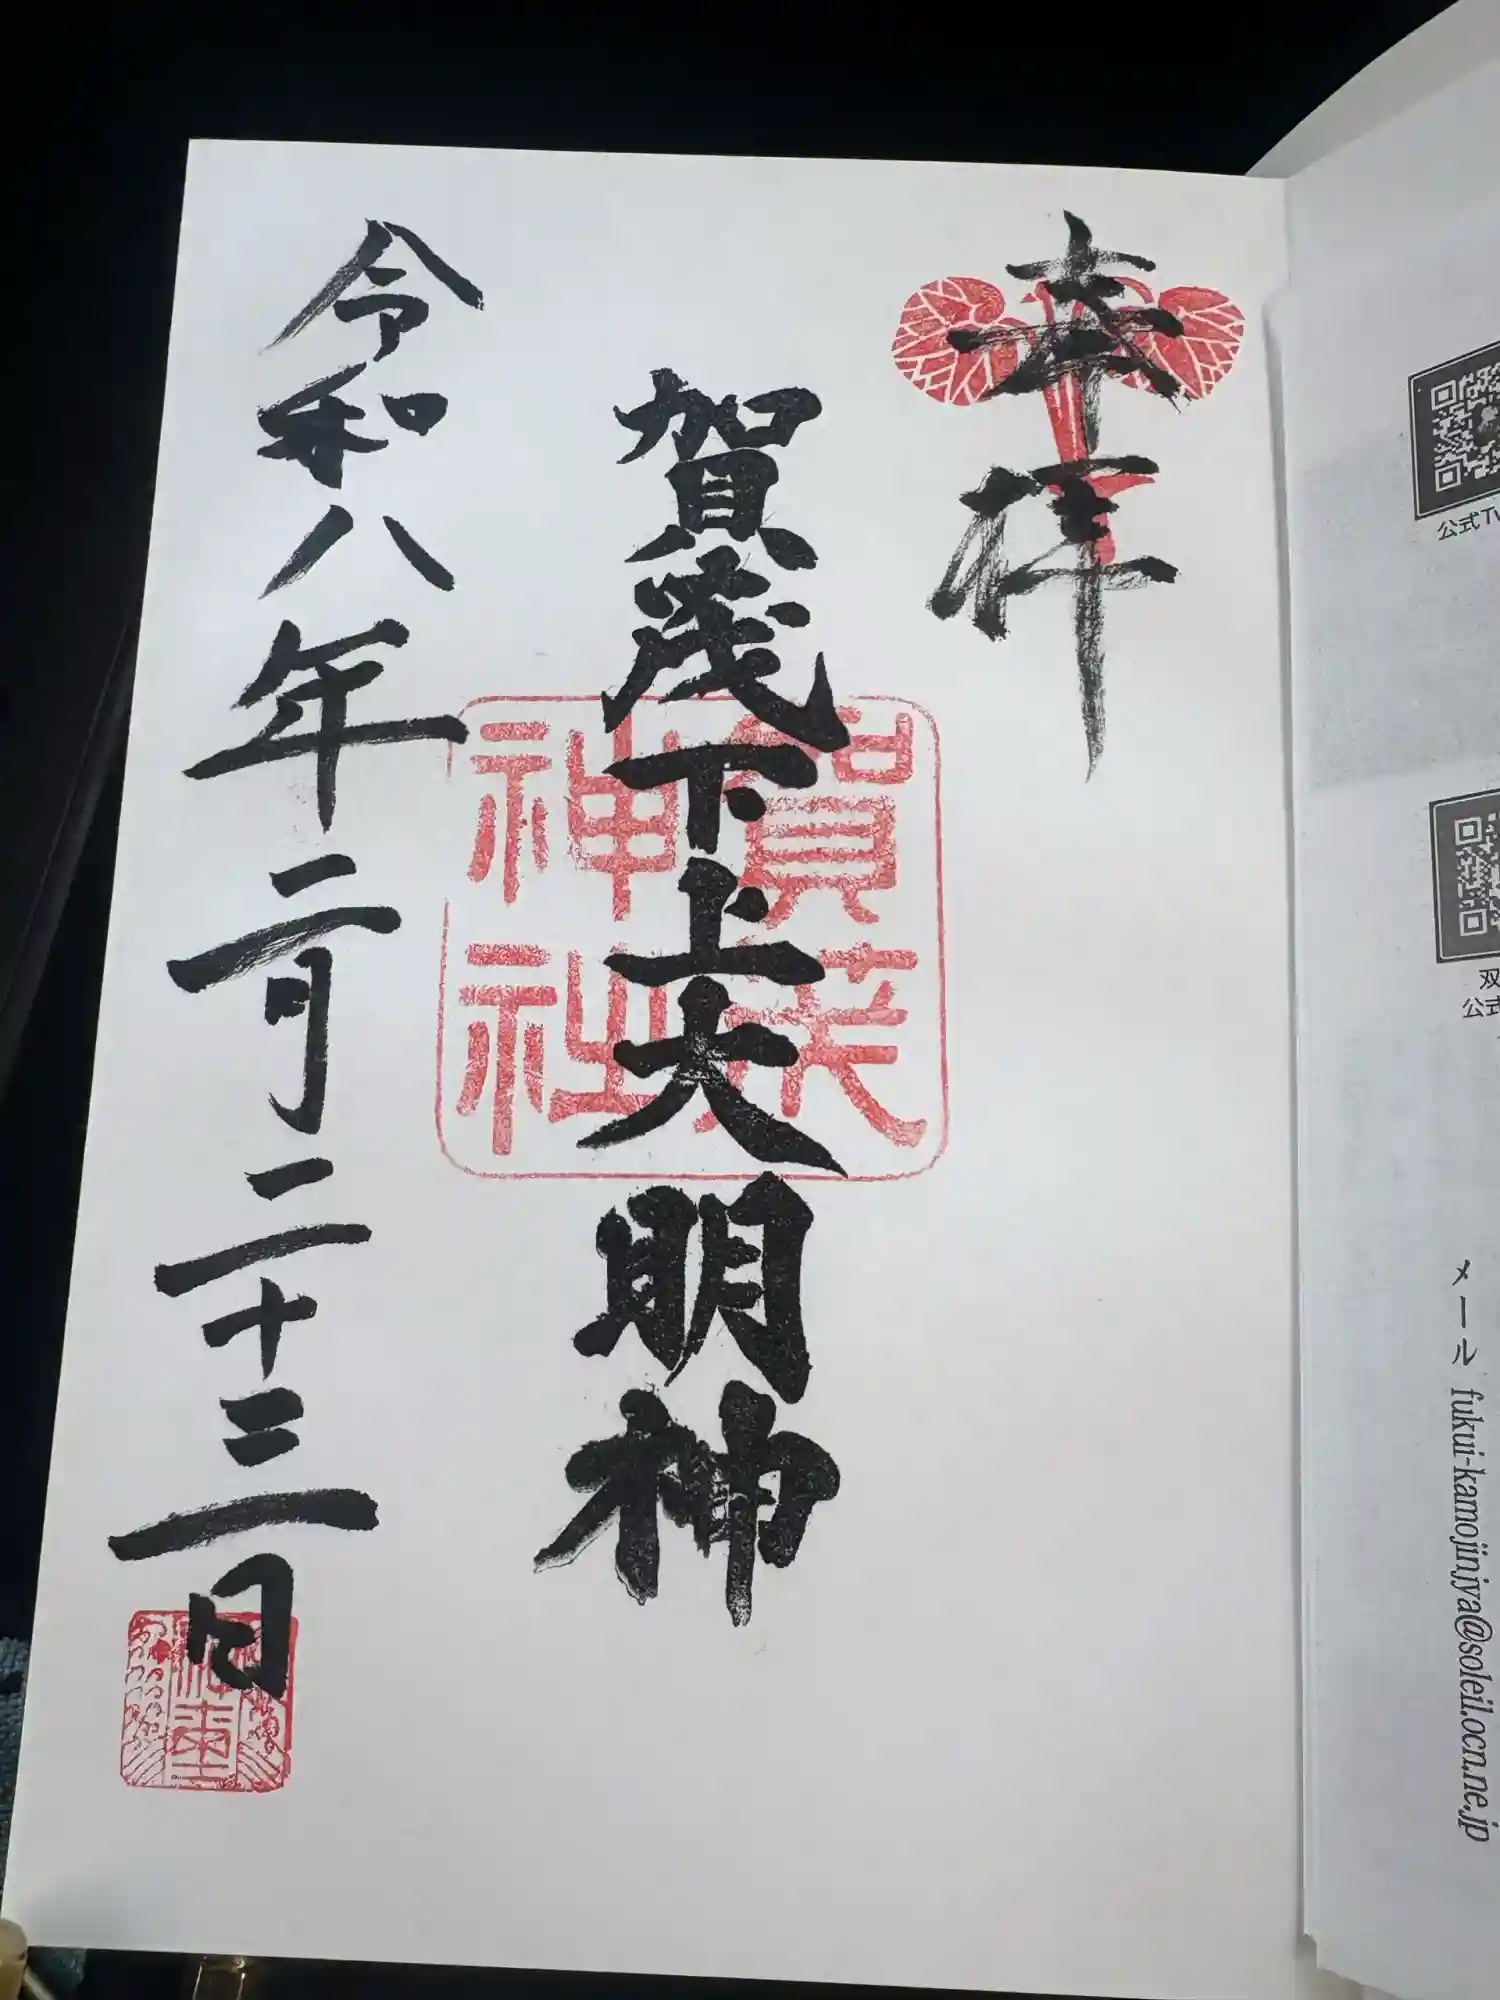 奉拝
賀茂下上大明神
賀茂
神社
令和八年二月二十三日
公式Tw
双
公式
メール fukui-kamojinjya@soleil.ocn.ne.jp